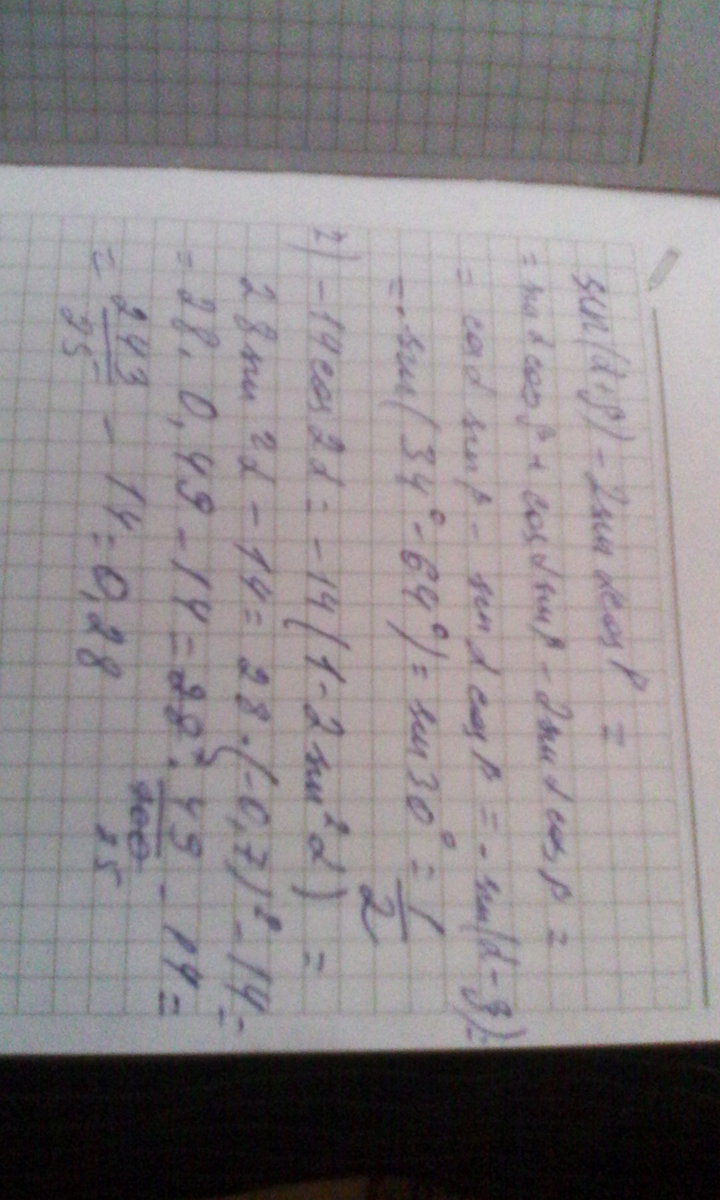 sin(α+β) - 2sin α cos β =
= sin α cos β + cos α sin β - 2 sin α cos β =
= cos α sin β - sin α cos β = - sin(α - β) =
= - sin(34° - 64°) = sin 30° = 1/2
2) -14 cos 2α = -14(1 - 2 sin²α) =
28 sin²α - 14 = 28·(-0,7)² - 14 =
= 28·0,49 - 14 = 28⁷·49/100 25 - 14 =
= 243/25 - 14 = 0,28